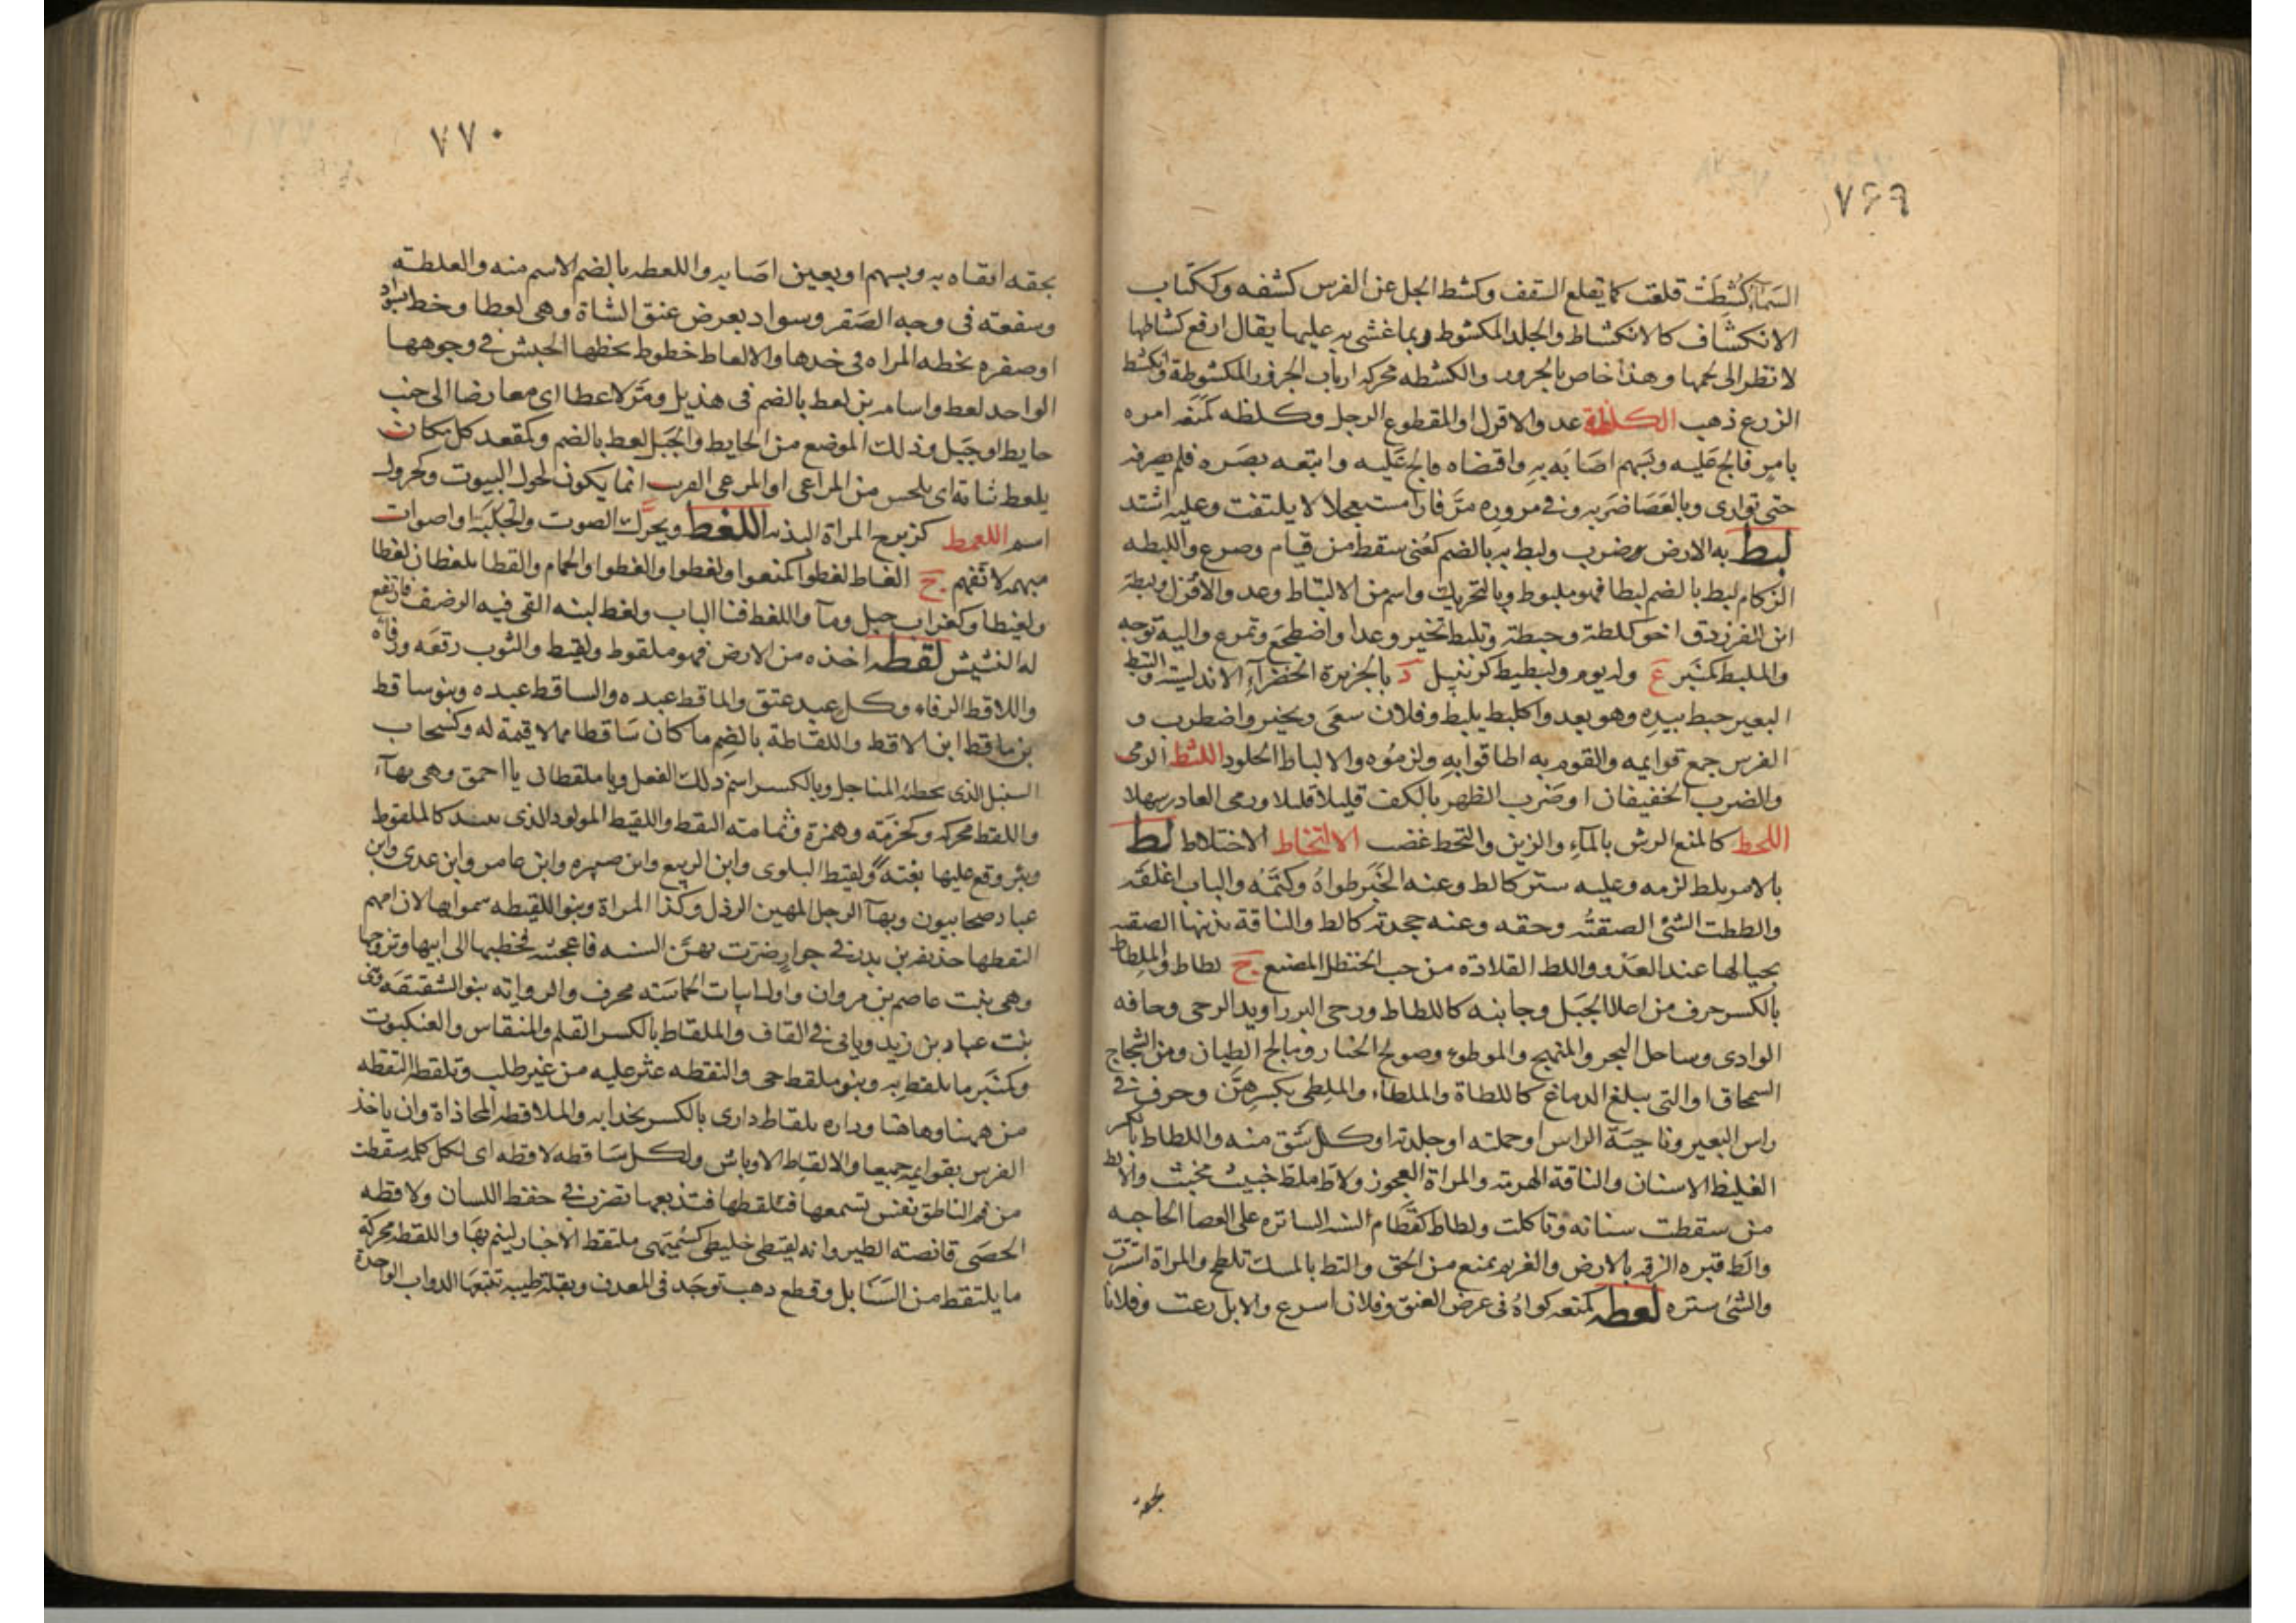 ٧٦٩
السَمآءُ كُشِطَتْ قلعت كما يقلع السقف وكشط الجل عن الفرس كشفه وككتاب
الانكشاف كالانكشاط والجلد المكشوط وبما غشى به عليها يقال ارفع كشاطها
لانظر الى لحمها وهذا خاص بالجزور والكشطه محركه ارباب الجزور المكشوطة وانكشط
الزرع ذهب الكلطة عدو الاقزل او المقطوع الرجل وكلظه كمنعه امره
بامر فالح عليه وبسهم اصابه به واقتضاه فالح عليه واتبعه بصره فلم يصرفه
حتى توارى وبالعصا ضربه وفي مروره مرّ فارا مستعجلا لا يلتفت وعليه اشتد
لبط به الارض ضرب ولبط به بالضم كعُنى سقط من قيام وصرع واللبطه
الزكام لبط بالضم لبطا فهو ملبوط وبالتحريك واسم من الالتباط وعدو الاقزل ولبطة
ابن الفرزدق اخو كلطة وحبطة وتلبط تحير وعدا واضطجع وتمرغ واليه توجه
والملبط كمنبر ع وله يوم ولبطيط كزنبيل د بالجزيرة الخضرآء الاندلسية والتبط
البعير خبط بيده وهو يعدو اكلبط يلبط وفلان سعى وتحير واضطرب و
الفرس جمع قوايمه والقوم به اطافوا به ولزموه والالباط الجلود اللثط الرمى
والضرب الخفيفان او ضرب الظهر بالكف قليلا قليلا ورمى العاذر سهلا
اللحط كالمنع الرش بالمآء والزبن والتحط غضب الالتخاط الاختلاط لط
بالامر يلط لزمه وعليه ستر كالط وعنه الخبر طواهُ وكتمه والباب اغلقه
والططت الشئ الصقته وحقه وعنه جحدته كالط والناقة بذنبها الصقته
بحيالها عند العدو واللط القلادة من حب الحنظل المصبغ ج لطاط والملطاط
بالكسر حرف من اعلا الجبل وجانبه كاللطاط ورحى البزر او يد الرحى وحافه
الوادى وساحل البحر والمنهج والموطوء وصوبج الخباز ومالج الطيان ومن الشجاج
السمحاق او التى يبلغ الدماغ كاللطاة والملطاء والملطى بكسرهن وحرف في
راس البعير وناحية الراس او جملته او جلدته او كل شق منه واللطاط بالكسر
الغليظ الاسنان والناقة الهرمة والمراة العجوز ولاط ملط خبيث مخبث والالط
من سقطت سنانه وتاكلت ولطاط كقطام السنه الساتره على العصا الحاجه
والط قبره الزقه بالارض والغريم بمنع من الحق والتط بالمسك تلطخ والمراة استترت
والشئ ستره لعطه كمنعه كواهُ فى عرض العنق وفلان اسرع والابل رعت وفلانا
بحقه
٧٧٠
بحقه اتقاه به وبسهم او بعين اصابه واللعطه بالضم الاسم منه والعلطة
وسفعته فى وجه الصقر وسواد بعرض عنق الشاة وهى لعطا وخط بسواد
او صفره تخطه المراه فى خدها والالعاط خطوط تخطها الحبش في وجوهها
الواحد لعط واسامه بن لعط بالضم فى هذيل ومَرّ لاعطا اى معارضا الى جنب
حايط او جبل وذلك الموضع من الحايط والجبل لعط بالضم وكمقعد كل مكان
يلعط نباته اى يلحس من المراعى او المرعى القريب انما يكون لحول البيوت وكجرول
اسم اللعمط كزبرج المراة البذيه اللغط ويحرّك الصوت والجلبة او اصوات
مبهمه لا تفهم ج الغاط لغطوا كمنعوا ولغطوا والغطوا والحمام والقطا يلغطان لغطا
ولغيطا وكغراب جبل ومآ واللغط فنا الباب ولغط لبنه القى فيه الرضف فارتفع
له النشيش لقطه اخذه من الارض فهو ملقوط ولقيط والثوب رقعه ورفأه
واللاقط الرفاء وكل عبد عتق والماقط عبده والساقط عبده وبنو ساقط
بن ماقط ابن لاقط واللقاطة بالضم ما كان ساقطا مما لا قيمة له وكسحاب
السنبل الذى يخطئه المناجل وبالكسر اسم ذلك الفعل ويا ملقطان يا احمق وهى بهآء
واللقط محركه وكحزمة وهمزة وثمامته النقط واللقيط المولود الذى ينبذ كالملقوط
وبئر وقع عليها بغتةً ولقيط البلوى وابن الربيع وابن صبره وابن عامر وابن عدى وابن
عباد صحابيون وبهآ الرجل المهين الرذل وكذا المراة وبنو اللقيطه سموا بها لان امهم
التقطها حذيفه بن بدر في جوار ضرت بهن السنه فاعجبته فخطبها الى ابيها وتزوجها
وهى بنت عاصم بن مروان واول ابيات الحماسه محرف والروايه بنو الشقيقه وهى
بنت عباد بن زيد وياتى في القاف والملقاط بالكسر القلم والمنقاس والعنكبوت
وكمنبر ما يلقط به وبنو ملقط حى والتقطه عثر عليه من غير طلب وتلقطه التقطه
من ههنا وهاهنا وداره بلقاط دارى بالكسر بحذايه والملاقطه المحاذاة وان ياخذ
الفرس بقوايمه جميعا والالقاط الاوباش ولكل ساقطه لاقطه اى لكل كلمه سقطت
من فم الناطق نفس تسمعها فتلقطها فتذيعها تضرب في حفظ اللسان ولاقطه
الحصى قانصته الطير وانه لقيطى خليطى كسميهى ملتقط الاخبار لينم بها واللقط محركة
ما يلتقط من السنابل وقطع ذهب توجد فى المعدن وبقلة طيبه تتبعها الدواب الواحدة